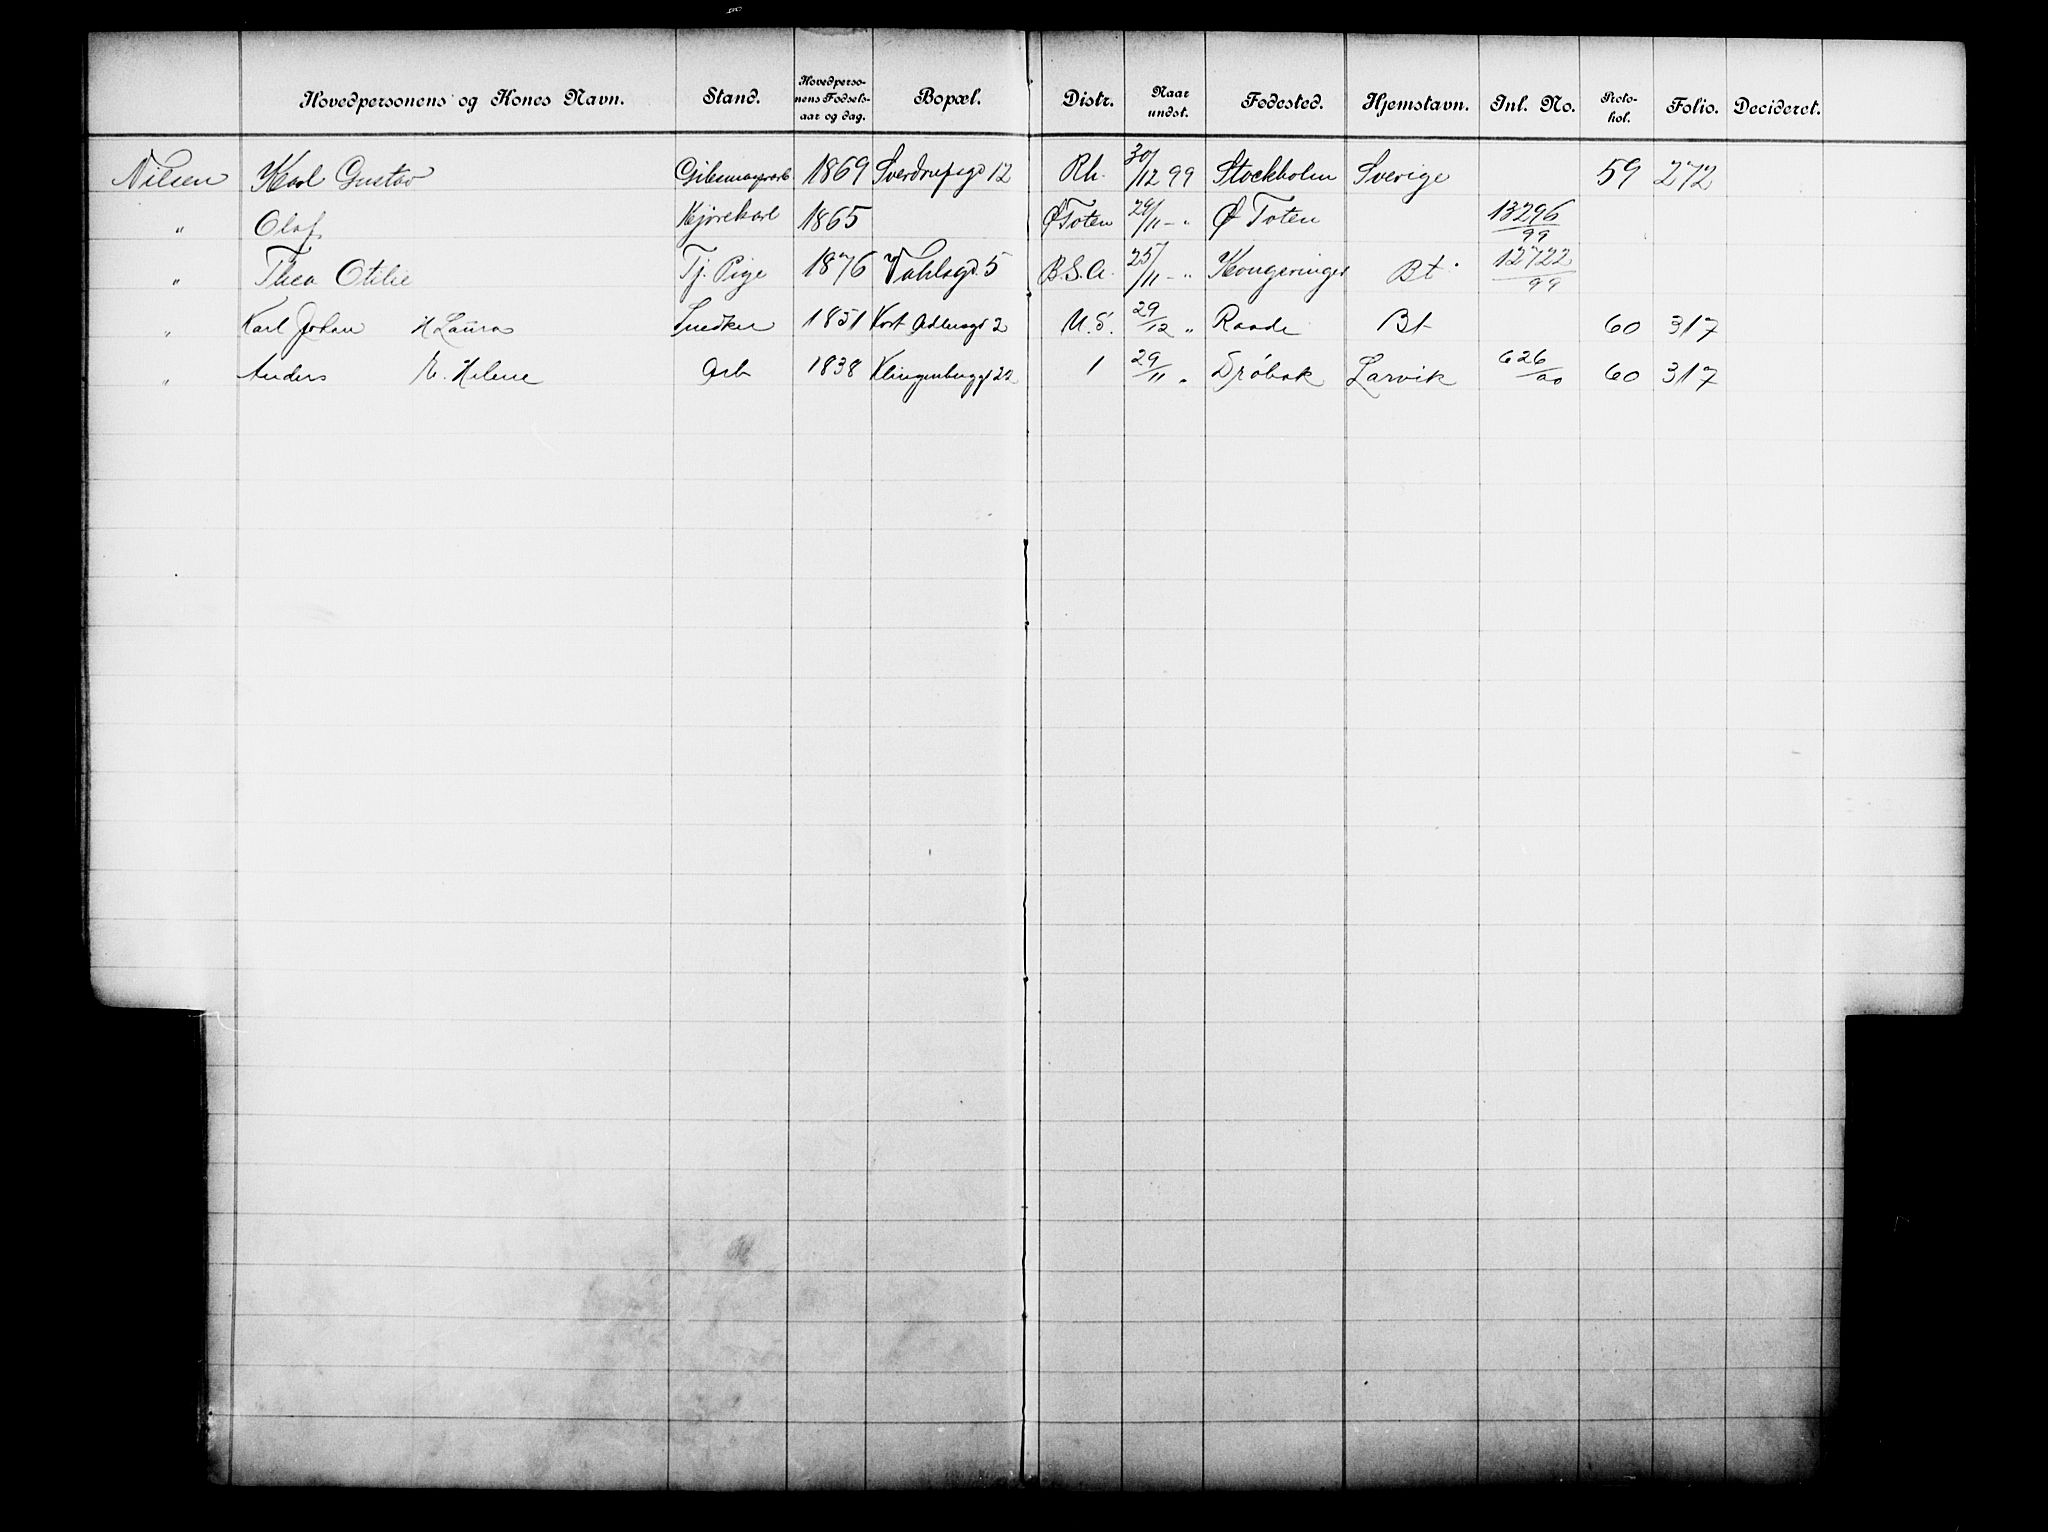 Hovedpersonens og Kones Navn. Stand. Hovedpersonens Fødselsaar og dag. Bopæl. Distr. Naar undst. Fødested. Hjemstavn. Inl. No. Protokol. Folio. Decideret.
Nilsen Karl Gustav 1869 Sverdrupsgd 12 Rh. 30/12 99 Stockholm Sverige 59 272
" Olaf Kjørekarl 1865 Ø Toten 29/11 - " Ø Toten 13296/99
" Thea Otilie Tj. Pige 1876 Vahlsgd 5 B.S.A. 25/11 - " Kongsvinger Bt. 12722/99
" Karl Johan H Laura Snedker 1851 Kort Adlersgd 2 U.S. 29/12 " Raade Bt 60 317
" Anders E. Helene Arb 1838 1 29/11 " Drøbak Larvik 626/00 60 317